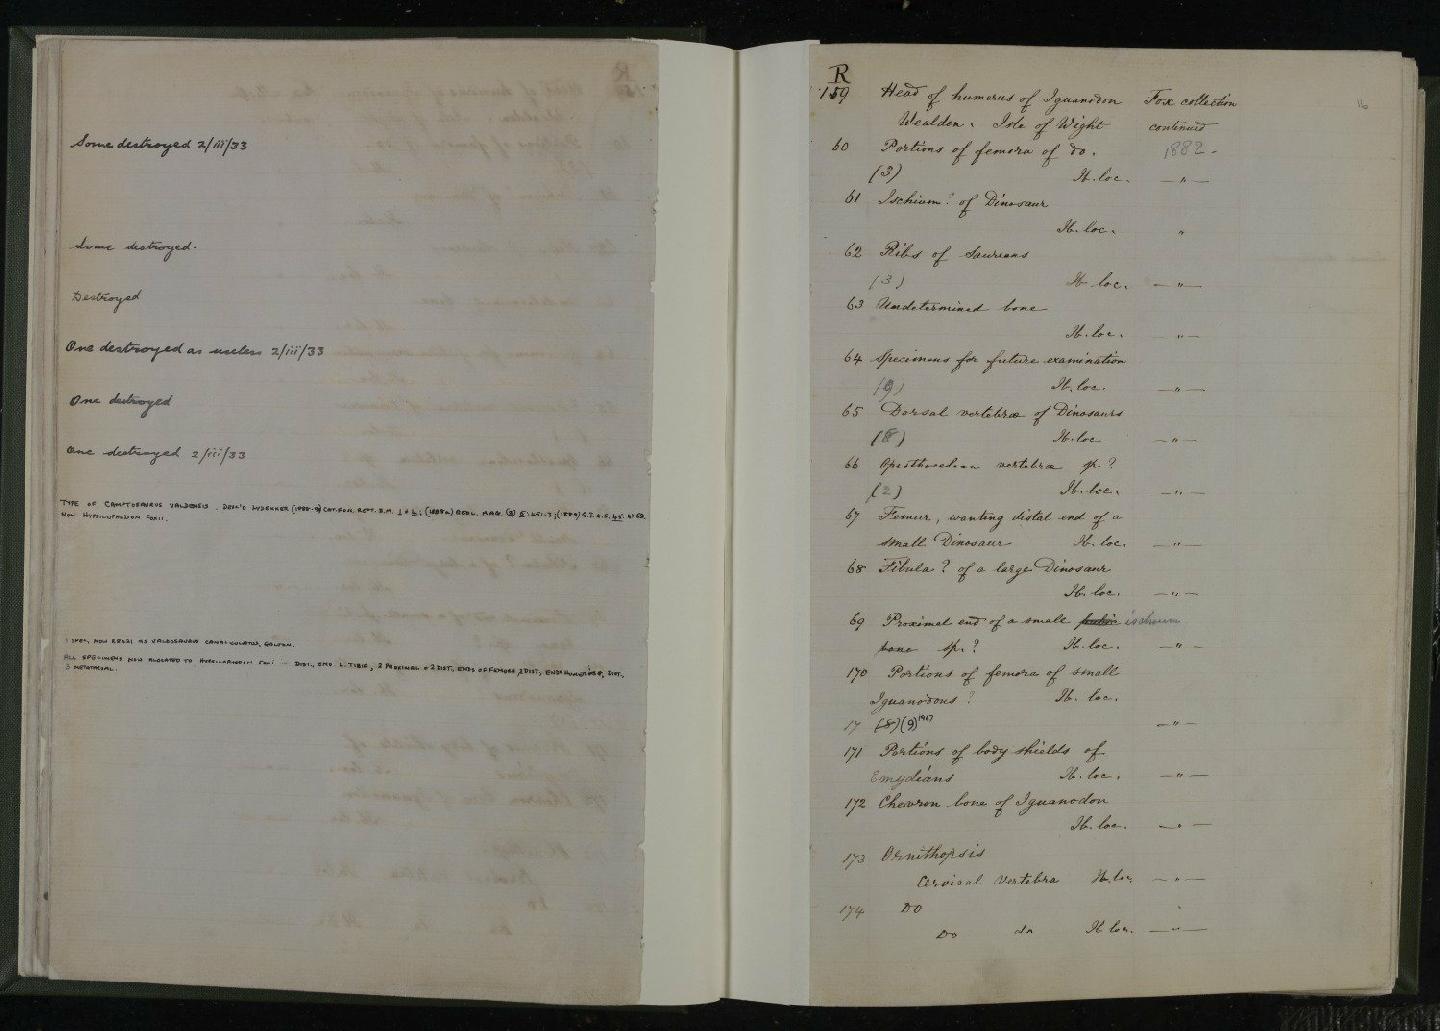 Some destroyed 2/iii/33
Some destroyed.
Destroyed
One destroyed as useless 2/iii/33
One destroyed
One destroyed 2/iii/33
TYPE OF CAMPTOSAURUS VALDENSIS. DESC'D LYDEKKER CAT. FOSS. REPT. B.M.
NOW HYPSILOPHODON FOXII.
NOW AS VALDOSAURUS CANALICULATUS, GALTON.
ALL SPECIMENS NOW ALLOCATED TO HYPSILOPHODON FOXII - DIST. END L. TIBIA, 2 PROXIMAL + 2 DIST. ENDS OF FEMORA, 2 DIST. ENDS HUMERUS, DIST.
3 METATARSAL.
16
R
159 Head of humerus of Iguanodon Fox collection
Wealden. Isle of Wight continued
60 Portions of femora of do. 1882.
(3) Ib. loc. — " —
61 Ischium? of Dinosaur
Ib. loc. "
62 Ribs of Saurians
(3) Ib. loc. — " —
63 Undetermined bone
Ib. loc. — " —
64 Specimens for future examination
(9) Ib. loc. — " —
65 Dorsal vertebræ of Dinosaurs
(8) Ib. loc — " —
66 Opisthocœlian vertebræ sp.?
(2) Ib. loc. — " —
67 Femur, wanting distal end of a
small Dinosaur Ib. loc. — " —
68 Fibula? of a large Dinosaur
Ib. loc. — " —
69 Proximal end of a small pubic ischium
bone sp.? Ib. loc. — " —
170 Portions of femora of small
Iguanodons? Ib. loc.
17 (8) (9) 1917 — " —
171 Portions of body shields of
Emydians Ib. loc. — " —
172 Chevron bone of Iguanodon
Ib. loc. — " —
173 Ornithopsis
Cervical vertebra Ib. loc. — " —
174 Do
Do do Ib loc. — " —